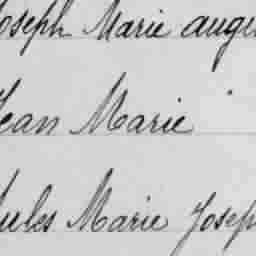 Joseph Marie augu
Jean Marie
Jules Marie Joseph